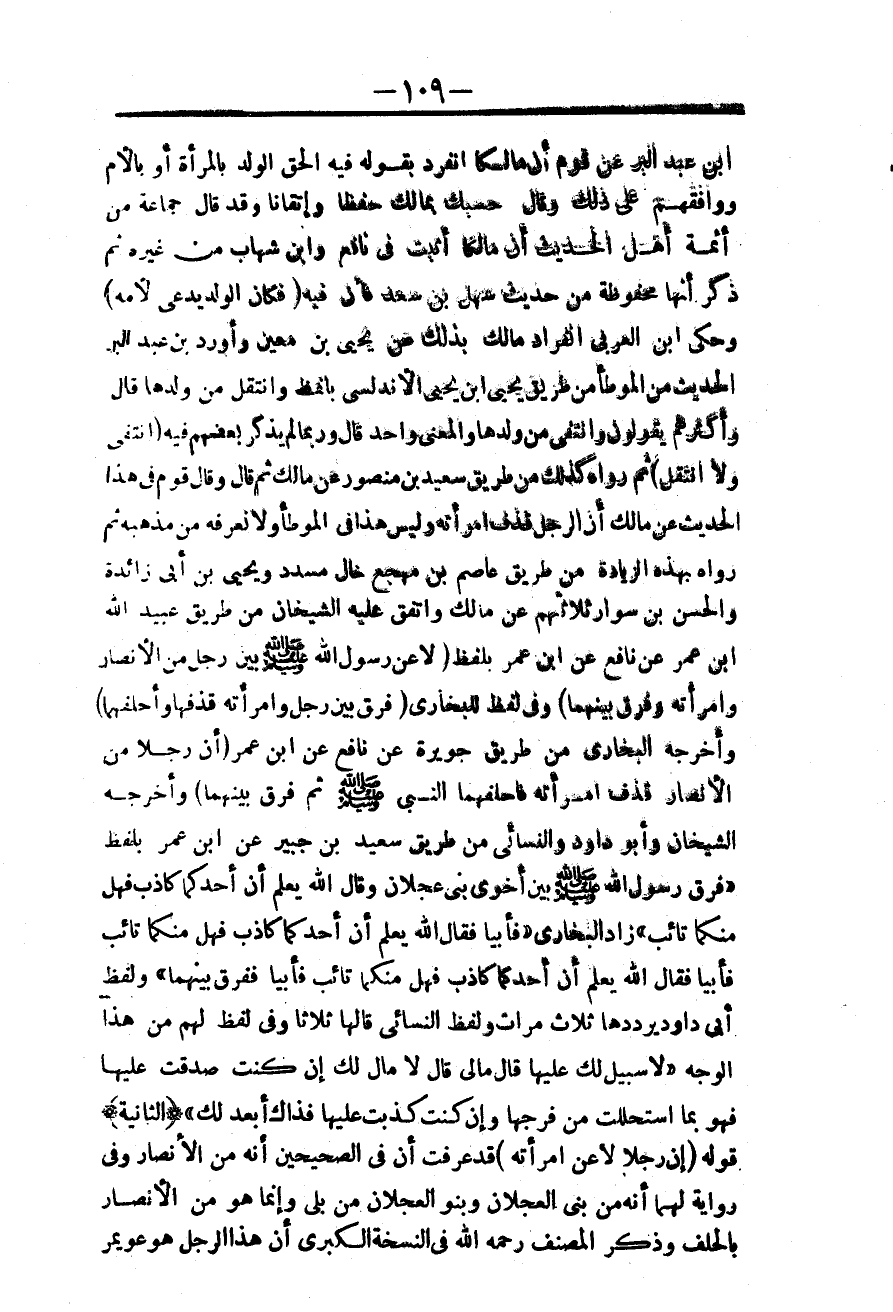 —١٠٩—
ابن عبد البر عن قوم أن مالكا انفرد بقوله فيه الحق الولد بالمرأة أو بالأم
ووافقهم على ذلك وقال حسبك بمالك حفظا وإتقانا وقد قال جماعة من
أئمة أهل الحديث أن مالكا أثبت فى نافع وابن شهاب من غيره ثم
ذكر أنها محفوظة من حديث سهل بن سعد قال فيه (فكان الولد يدعى لأمه)
وحكى ابن العربى انفراد مالك بذلك عن يحيى بن معين وأورد بن عبد البر
الحديث من الموطأ من طريق يحيى ابن يحيى الأندلسى بلفظ وانتقل من ولدها قال
وأكثرهم يقولون وانتفى من ولدها والمعنى واحد قال وربما لم يذكر بعضهم فيه (انتفى
ولا انتقل) ثم رواه كذلك من طريق سعيد بن منصور عن مالك ثم قال وقال قوم فى هذا
الحديث عن مالك أن الرجل قذف امرأته وليس هذا فى الموطأ ولا نعرفه من مذهبه ثم
رواه بهذه الزيادة من طريق عاصم بن مهجع خال مسدد ويحيى بن أبى زائدة
والحسن بن سوار ثلاثتهم عن مالك واتفق عليه الشيخان من طريق عبيد الله
ابن عمر عن نافع عن ابن عمر بلفظ (لاعن رسول الله ﷺ بين رجل من الأنصار
وامرأته وفرق بينهما) وفى لفظ للبخارى (فرق بين رجل وامرأته قذفها وأحلفهما)
وأخرجه البخارى من طريق جويرة عن نافع عن ابن عمر (أن رجلا من
الأنصار قذف امرأته فاحلفهما النبي ﷺ ثم فرق بينهما) وأخرجه
الشيخان وأبو داود والنسائى من طريق سعيد بن جبير عن ابن عمر بلفظ
«فرق رسول الله ﷺ بين أخوى بنى عجلان وقال الله يعلم أن أحدكما كاذب فهل
منكما تائب» زاد البخارى «فأبيا فقال الله يعلم أن أحدكما كاذب فهل منكما تائب
فأبيا فقال الله يعلم أن أحدكما كاذب فهل منكما تائب فأبيا ففرق بينهما» ولفظ
أبى داود يرددها ثلاث مرات ولفظ النسائى قالها ثلاثا وفى لفظ لهم من هذا
الوجه «لا سبيل لك عليها قال مالى قال لا مال لك إن كنت صدقت عليها
فهو بما استحللت من فرجها وإن كنت كذبت عليها فذاك أبعد لك» ﴿الثانية﴾
قوله (إن رجلا لاعن امرأته) قد عرفت أن فى الصحيحين أنه من الأنصار وفى
رواية لهما أنه من بنى العجلان وبنو العجلان من بلى وإنما هو من الأنصار
بالحلف وذكر المصنف رحمه الله فى النسخة الكبرى أن هذا الرجل هو عويمر